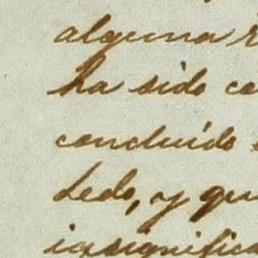 alguna
ha sido co
concluido
dedo, y que
insignifica